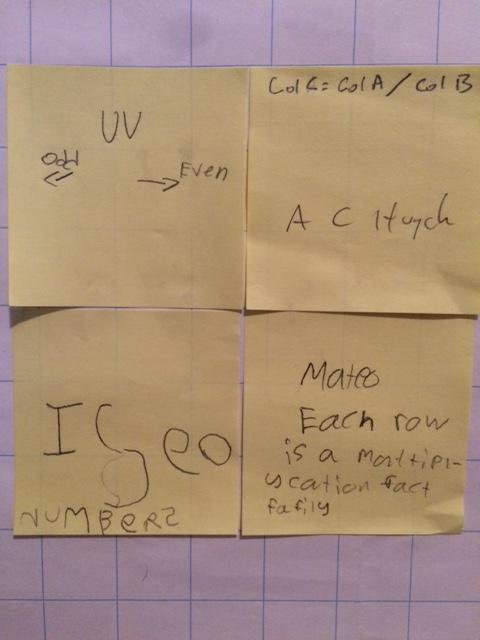 UV
Odd
Even
Col C = Col A / Col B
A C
NUMBERS
Mateo
Each row
is a moltipl-
ycation fact
fafily